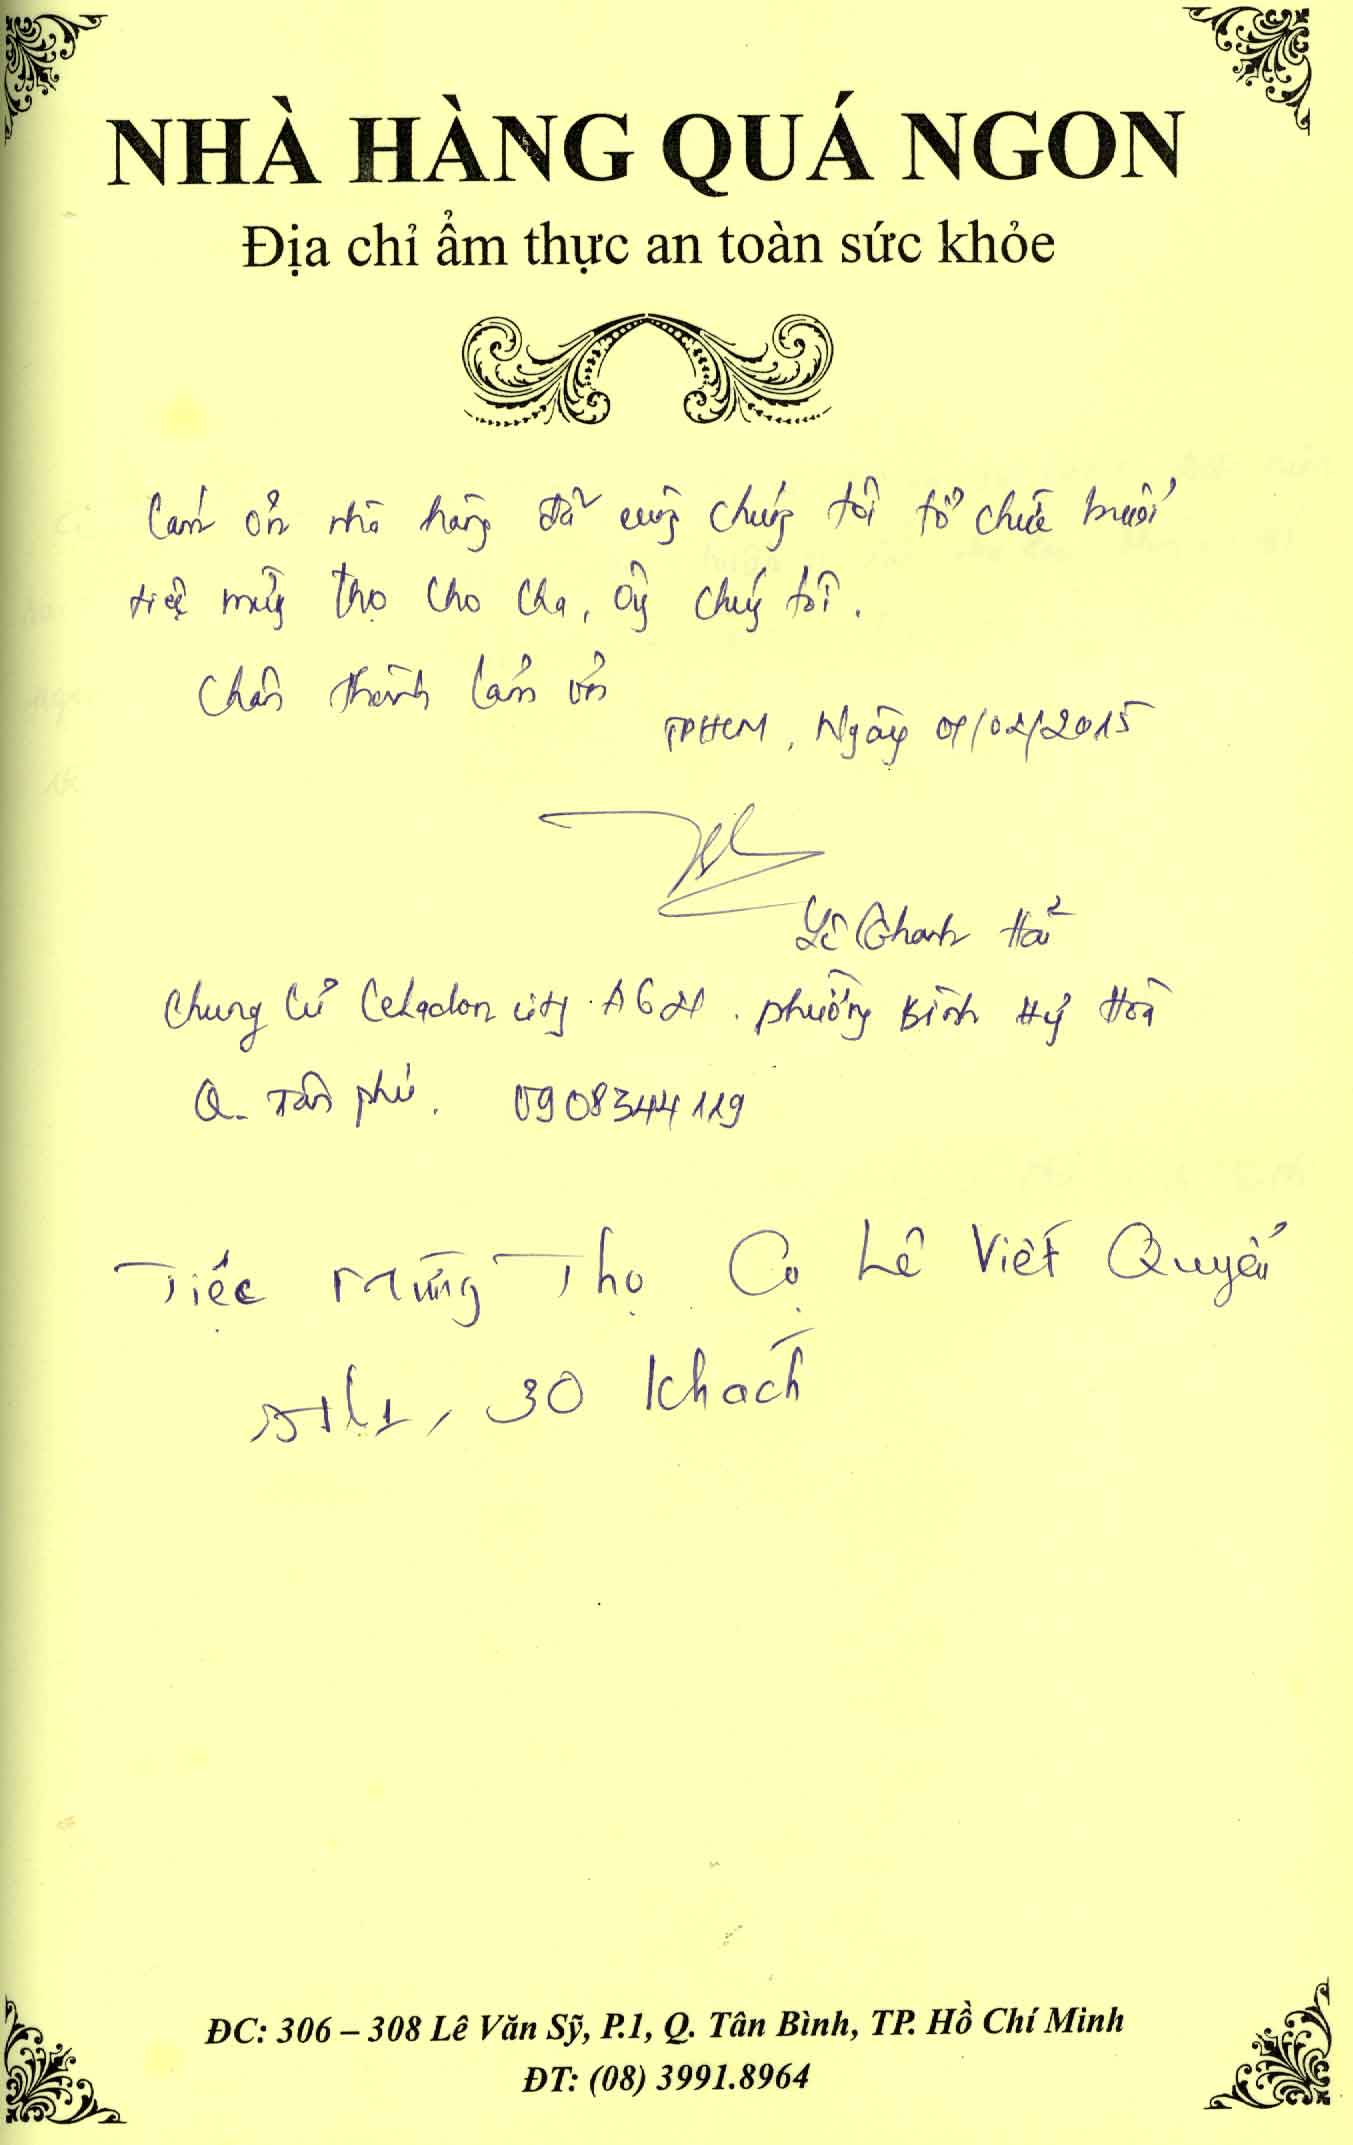 NHÀ HÀNG QUÁ NGON
Địa chỉ ẩm thực an toàn sức khỏe
Cám ơn nhà hàng đã cùng chúng tôi tổ chức buổi
tiệc mừng thọ cho cha, ông chúng tôi.
Chân thành cảm ơn
TPHCM, Ngày 01/02/2015
Lê Thanh Hải
Chung cư Celadon city A6 . phường Bình Hưng Hoà
Q. Tân phú. 0908344119
Tiệc Mừng Thọ Cụ Lê Viết Quyến
, 30 Khách
ĐC: 306 – 308 Lê Văn Sỹ, P.1, Q. Tân Bình, TP. Hồ Chí Minh
ĐT: (08) 3991.8964